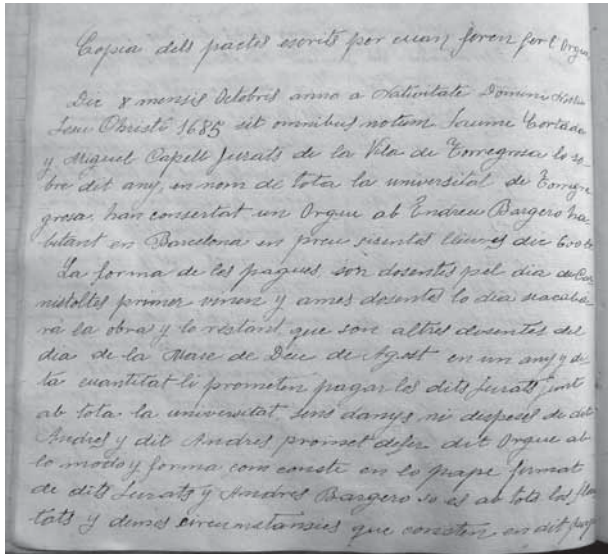 Copia dels pactes escrits por cuan feren fer l Orgue
Die 8 mensis Octobris anno a Nativitate Domini Nostri
Jesu Christi 1685 sit omnibus notum Jaume Cortada
y Miquel Capell Jurats de la Vila de Torregrosa lo so-
bre dit any, en nom de tota la universitat de Torregre
grosa, han consertat un Orgue ab Endreu Bargero ha-
bitant en Barcelona en preu sisentas lliures dic 600 ll
La forma de les pagues, son dosentes pel dia de Car-
nistoltes primer vinen y ames dosentes lo dia seacaba-
ra la obra y lo restant, que son altres dosentes del
dia de la Mare de Deu de Agost en un any y di-
ta cuantitat li prometen pagar los dits Jurats junt
ab tota la universitat, sens danys, ni despeses de dit
Andres y dit Andres promet defer dit Orgue ab
lo modo y forma com consta en lo pape firmat
de dits Jurats y Andres Bargero so es ab tots los flau
tats y demes circunstansies que consten en dit pap